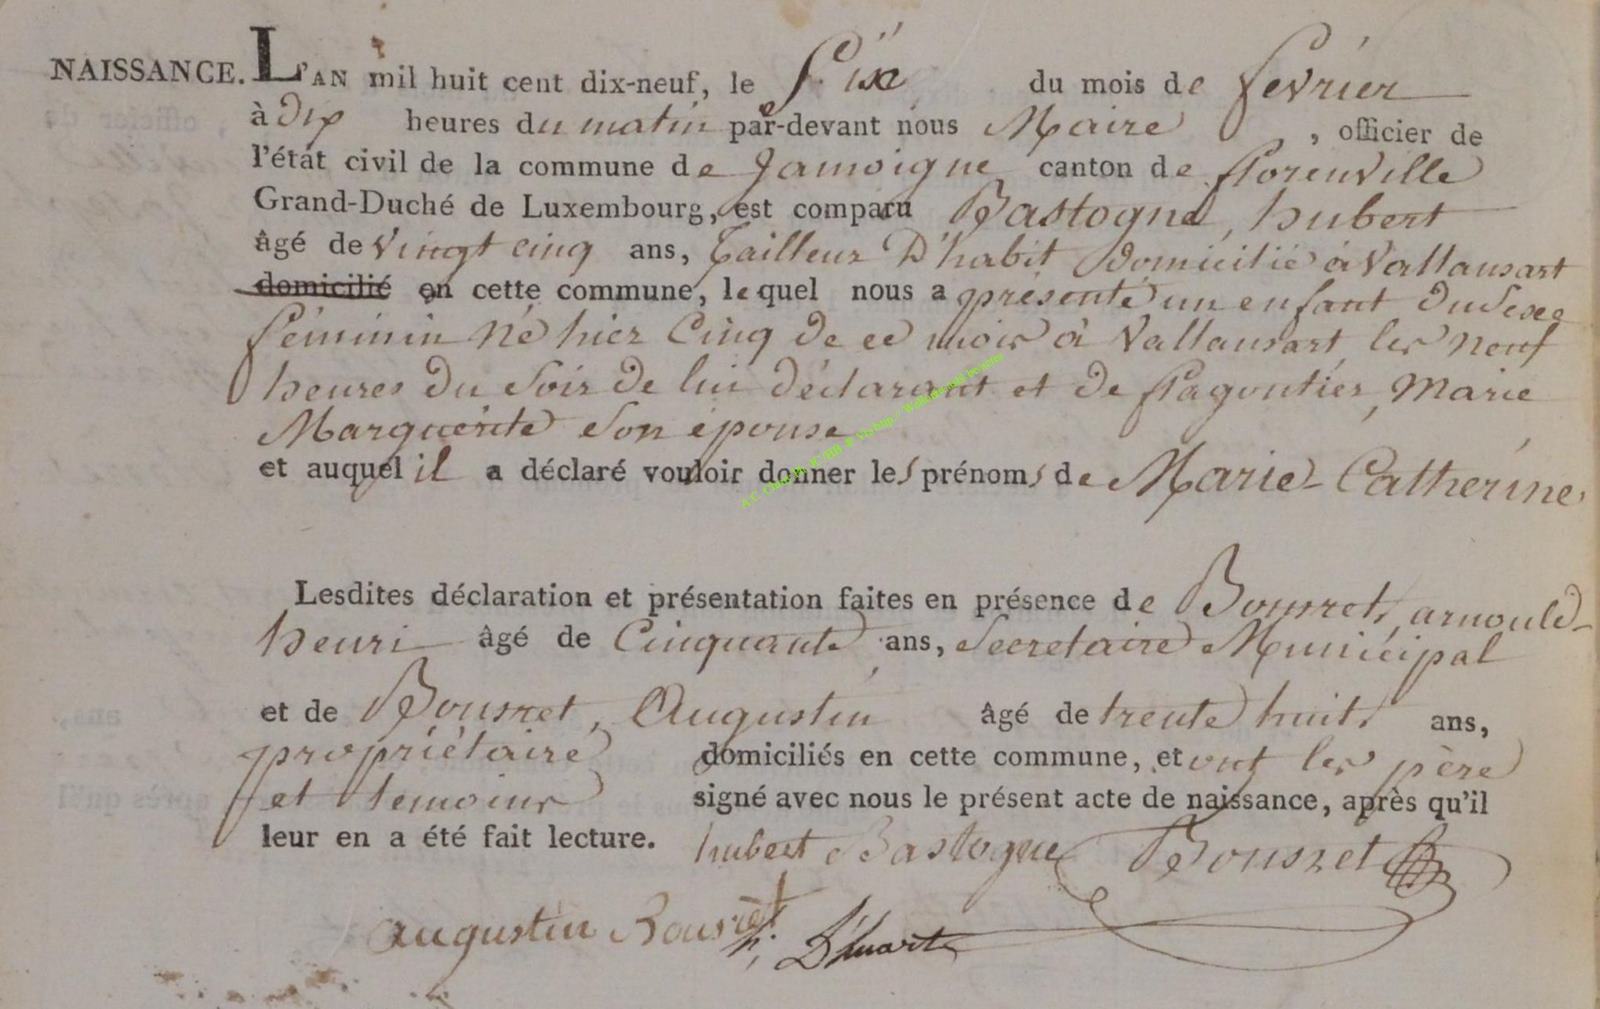 NAISSANCE. L'AN mil huit cent dix-neuf, le Six du mois de fevrier
à Dix heures du matin par-devant nous Maire , officier de
l'état civil de la commune de Jamoigne canton de florenville
Grand-Duché de Luxembourg, est comparu Bastogne, hubert
âgé de vingt cinq ans, Tailleur D'habit Domicilié à Vallansart
domicilié en cette commune, lequel nous a présenté un enfant du Sexe
féminin né hier Cinq de ce mois à Vallansart les neuf
heures du Soir de lui déclarant et de flagontier, Marie
Marguerite Son épouse
et auquel il a déclaré vouloir donner les prénoms de Marie-Catherine
Lesdites déclaration et présentation faites en présence de arnould-
henri âgé de Cinquante ans, Secretaire Municipal
et de Augustin âgé de trente huit ans,
propriétaire domiciliés en cette commune, et ont les père
et temoins signé avec nous le présent acte de naissance, après qu'il
leur en a été fait lecture. hubert Bastogne
augustin